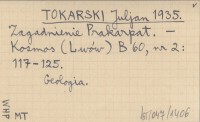 TOKARSKI Juljan 1935.
Zagadnienie Prakarpat. —
Kosmos (Lwów) B 60, nr 2:
117-125.
Geologia.
WHP
MT